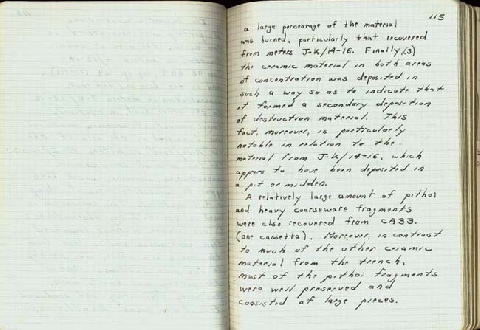 113
a large percentage of the material
was burned, particularly that recovered
from meters J-K/14-16. Finally, (3)
the ceramic material in both areas
of concentration was deposited in
such a way so as to indicate that
it formed a secondary deposition
of destruction material. This
fact, moreover, is particularly
notable in relation to the
material from J-K/14-16, which
appears to have been deposited in
a pit or midden.
A relatively large amount of pithoi
and heavy courseware fragments
were also recovered from CA33.
(see cassetta). Moreover, in contrast
to much of the other ceramic
material from the trench,
most of the pithoi fragments
were well preserved and
consisted of large pieces.